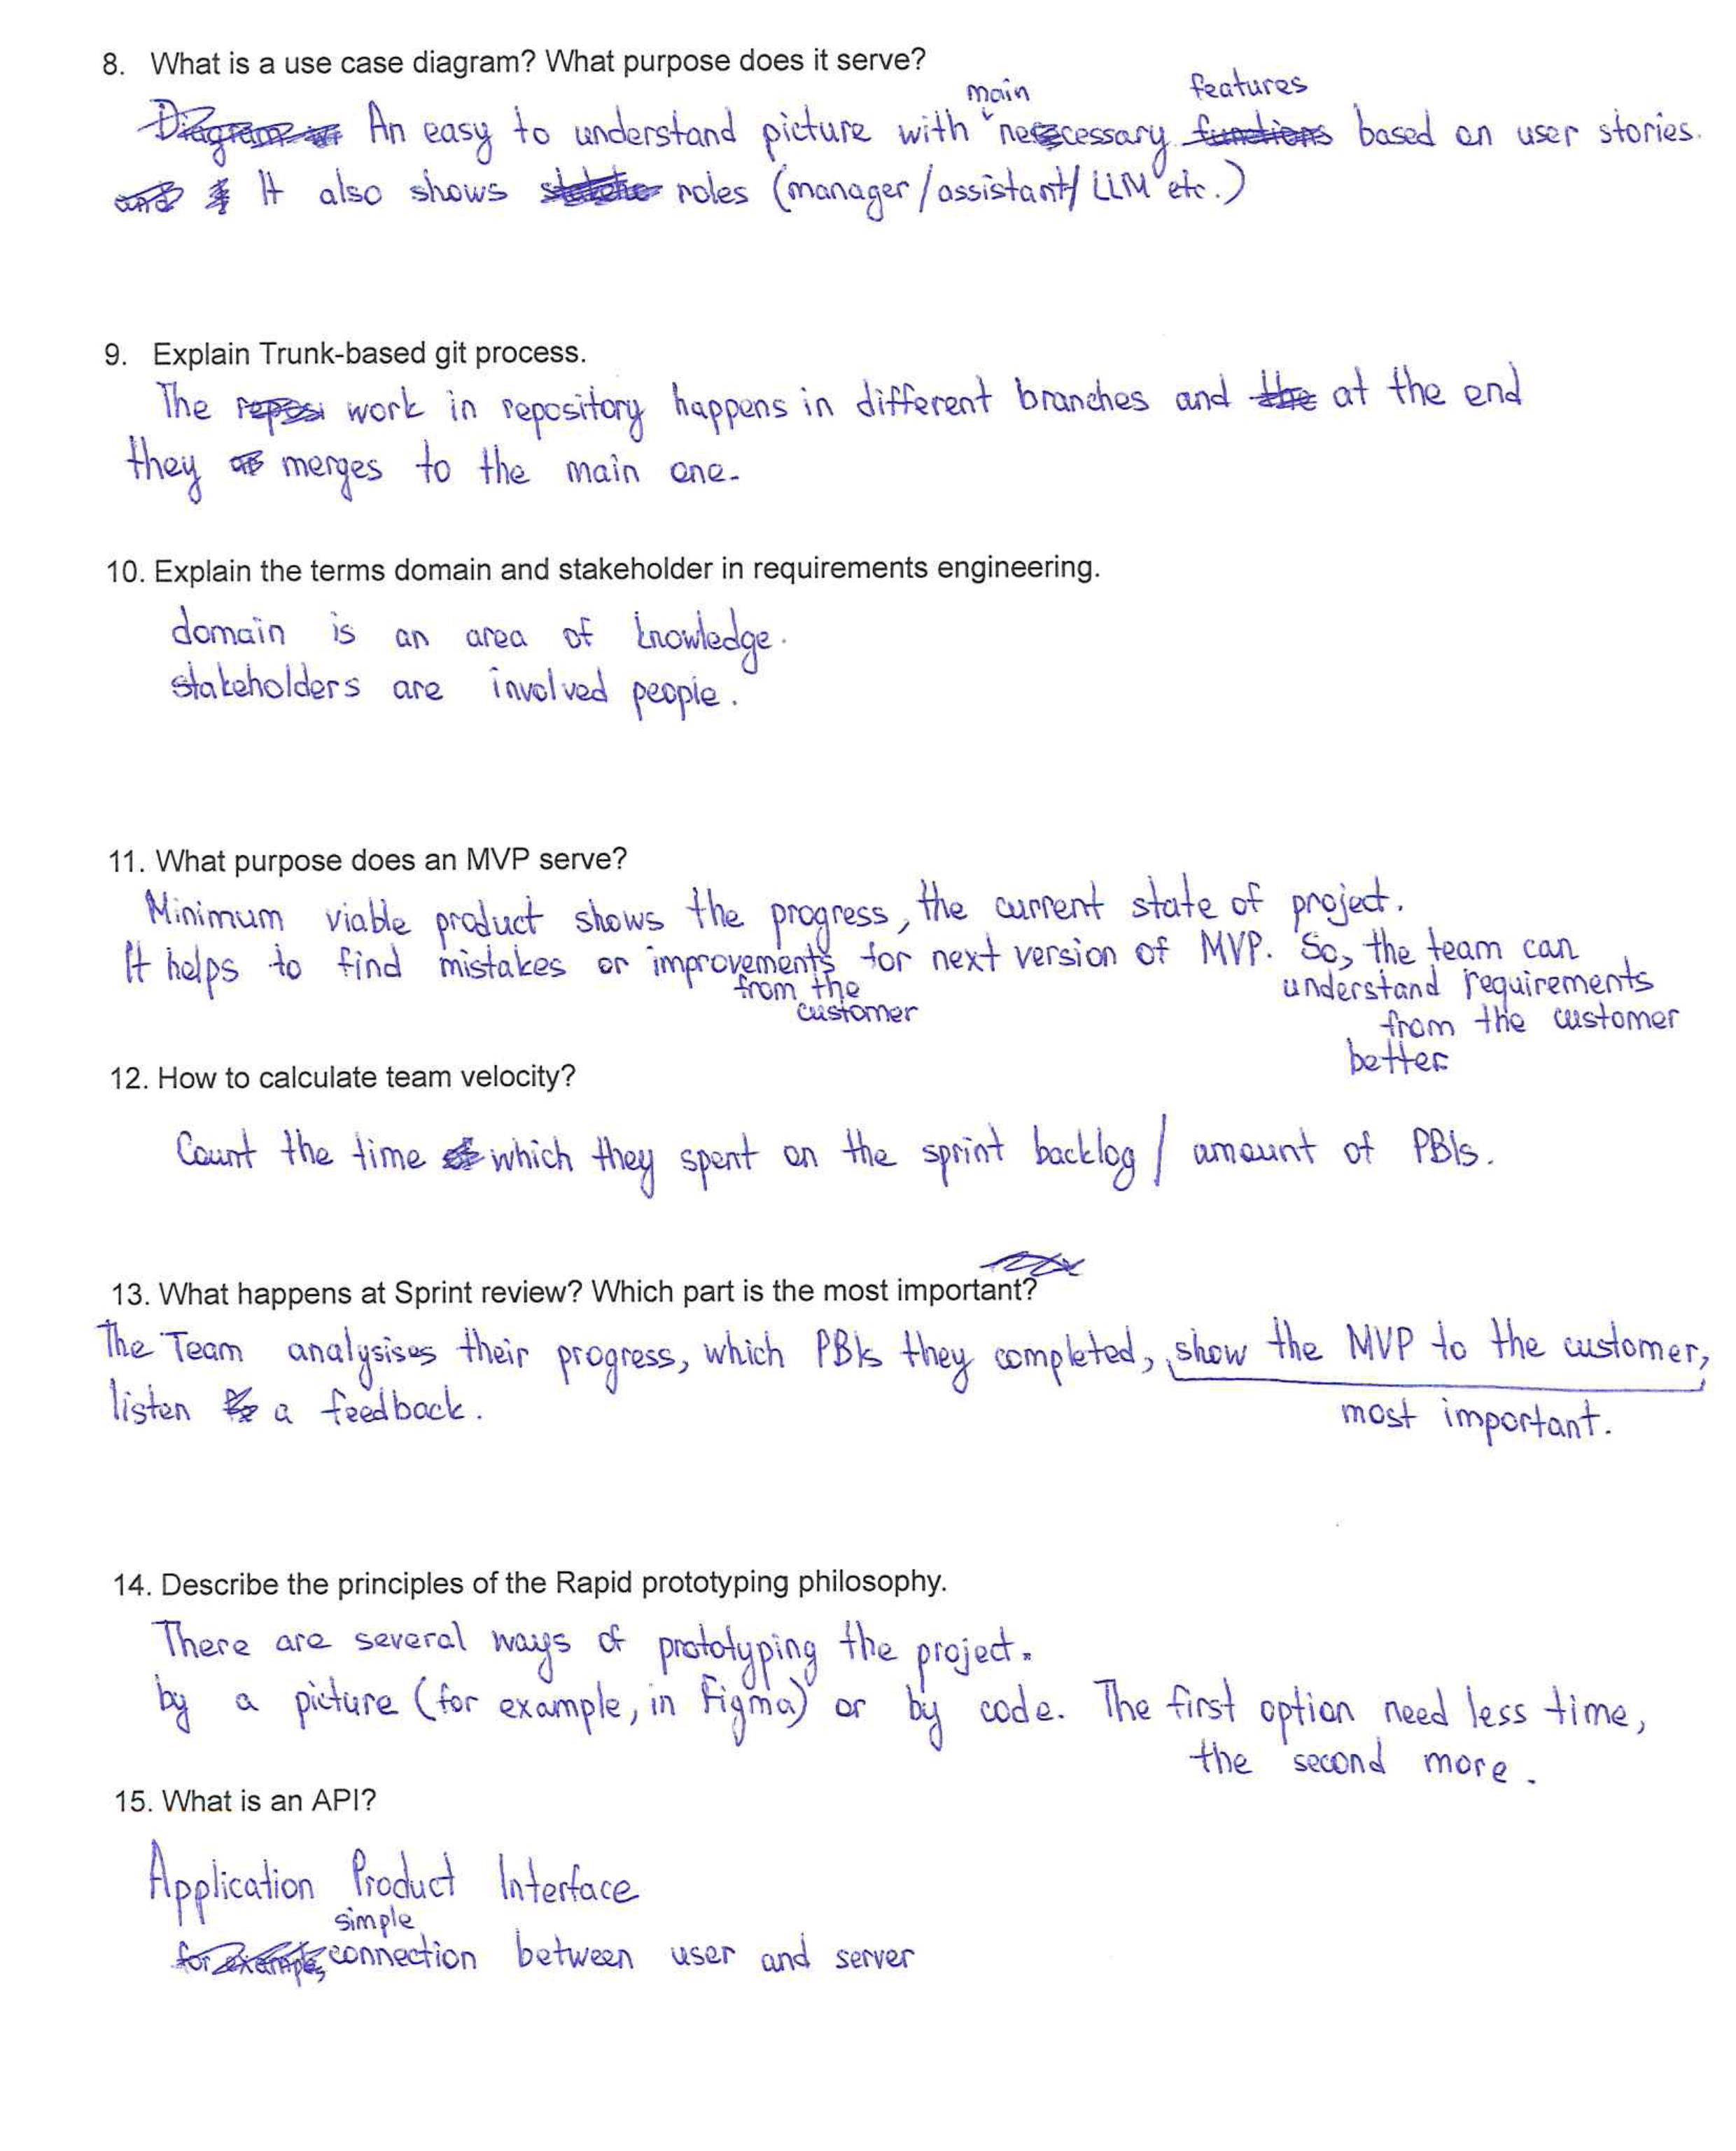 8. What is a use case diagram? What purpose does it serve?
main features
An easy to understand picture with necessary functions based on user stories.
It also shows roles (manager/assistant/LLM etc.)
9. Explain Trunk-based git process.
The work in repository happens in different branches and the at the end
they merges to the main one.
10. Explain the terms domain and stakeholder in requirements engineering.
domain is an area of knowledge.
stakeholders are involved people.
11. What purpose does an MVP serve?
Minimum viable product shows the progress, the current state of project.
It helps to find mistakes or improvements for next version of MVP. So, the team can
from the understand requirements
customer from the customer
better
12. How to calculate team velocity?
Count the time which they spent on the sprint backlog / amount of PBIs.
13. What happens at Sprint review? Which part is the most important?
The Team analysises their progress, which PBIs they completed, show the MVP to the customer,
listen a feedback. most important.
14. Describe the principles of the Rapid prototyping philosophy.
There are several ways of prototyping the project.
by a picture (for example, in Figma) or by code. The first option need less time,
the second more.
15. What is an API?
Application Product Interface
simple
for example, connection between user and server